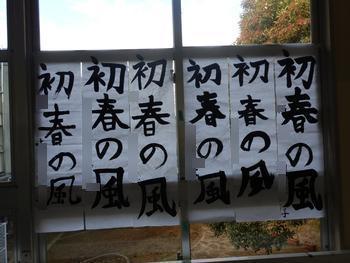 初春の風
初春の風
初春の風
初春の風
初春の風
初春の風
子